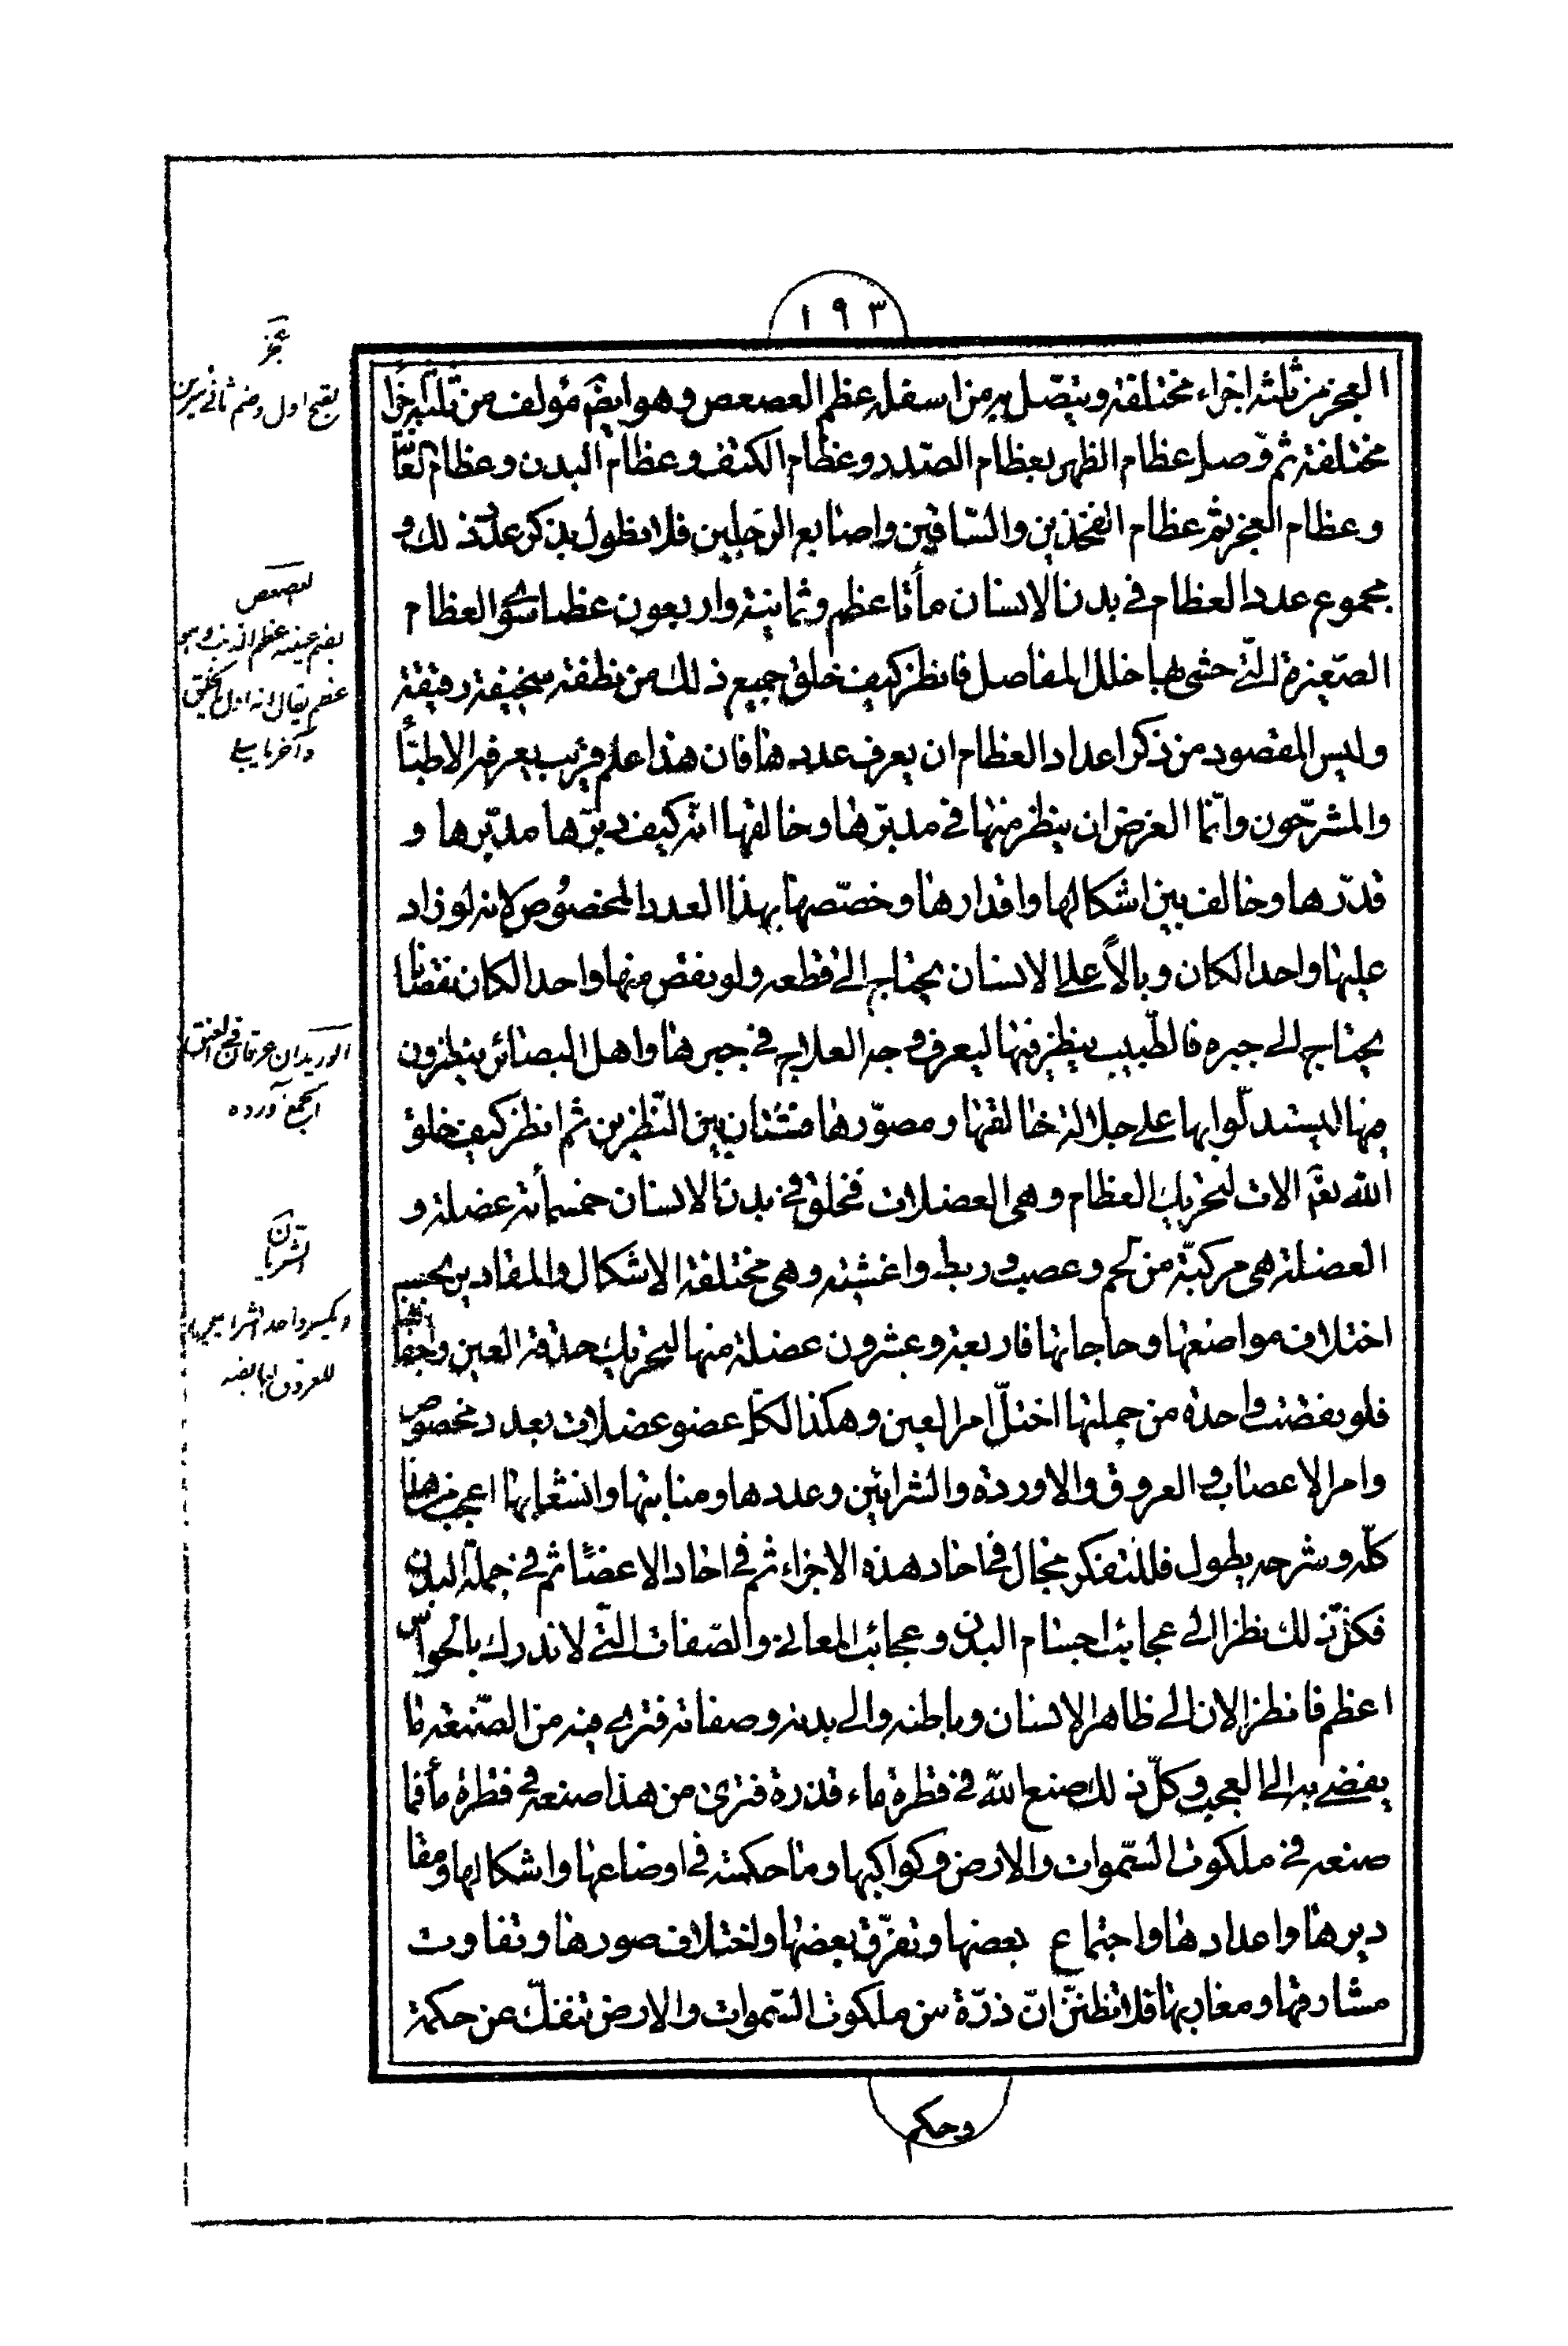 ١٩٣
العجز من ثلثه اجزاء مختلفة ويتصل به من اسفله عظم العصعص وهو ايضَ مؤلف من ثلثه اجزا
مختلفة ثم وصل عظام الظهر بعظام الصّدر وعظام الكتف وعظام اليدين وعظام العانة
وعظام العجز ثم عظام الفخذين والسّاقين واصابع الرجلين فلا نطول بذكر عدد ذلك و
مجموع عدد العظام في بدن الانسان مأتا عظم وثمانية واربعون عظما سوى العظام
الصّغيرة الّتي حشى بها خلل المفاصل فانظر كيف خلق جميع ذلك من نطفة سخيفة رقيقة
وليس المقصود من ذكر اعداد العظام ان يعرف عددها فان هذا علم قريب يعرفه الاطبّاء
والمشرحّون وانّما الغرض ان ينظر منها في مدبّرها وخالقها انّه كيف دبّرها مدبّرها و
قدّرها وخالف بين اشكالها واقدارها وخصّصها بهذا العدد المخصوص لانه لو زاد
عليها واحدا لكان وبالاً على الانسان يحتاج الى قطعه ولو نقص منها واحدا لكان نقصانا
يحتاج الى جبره فالطّبيب ينظر فيها ليعرف وجه العلاج في جبرها واهل البصائر ينظرون
فيها ليستدلّوا بها على جلالة خالقها ومصوّرها فشتان بين النّظرين ثم انظر كيف خلق
الله تعَ الات لتحريك العظام وهي العضلات فخلق في بدن الانسان خمسمأته عضلة و
العضلة هى مركبّة من لحم وعصب وربط واغشيته وهى مختلفة الاشكال والمقادير بحسب
اختلاف مواضعها وحاجاتها فاربعة وعشرون عضلة منها لتحريك حدقة العين واجفانها
فلو نقصت واحدة من جملتها اختلّ امر العين وهكذا لكل عضو عضلات بعدد مخصوص
وامر الاعصاب والعروق والاوردة والشرايين وعددها ومنابتها وانشعابها اعجب من هذا
كلّه وشرحه يطول فللتفكر مجال في احاد هذه الاجزاء ثم في احاد الاعضاء ثم في جملة البدن
فكلّ ذلك نظر الى عجايب اجسام البدن وعجائب المعاني والصّفات الّتي لا تدرك بالحواسّ
اعظم فانظر الان الى ظاهر الانسان وباطنه والى بدنه وصفاته فترى فيه من الصّنعة ما
يفضي به الى العجب وكلّ ذلك صنع الله في قطرة ماء قذرة فترى من هذا صنعه في قطرة مأ فما
صنعه في ملكوت السّموات والارض وكواكبها وما حكمته في اوضاعها واشكالها ومقا
ديرها واعدادها واجتماع بعضها وتفرّق بعضها واختلاف صورها وتفاوت
مشارقها ومغاربها فلا تظنّنّ انّ ذرّة من ملكوت السّموات والارض تنفكّ عن حكمة
وحكم
عجز
بفتح اول وضم ثاني سرين
العصعص
بضم عينيه عظم الذنب وهو
عظم يقال انه اول ما يخلق
وآخر ما يبلى
الوريدان عرقان في العنق
الجمع آورده
الشريان
ويكسر واحد الشرايين
للعروق النابضه